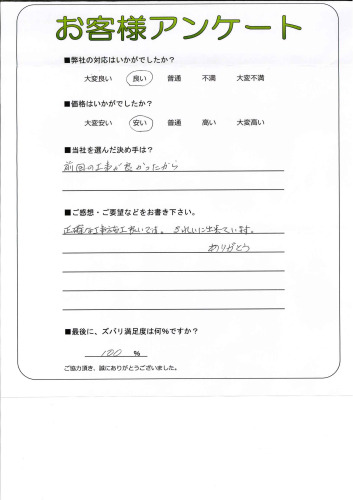 お客様アンケート
■弊社の対応はいかがでしたか?
大変良い 良い 普通 不満 大変不満
■価格はいかがでしたか?
大変安い 安い 普通 高い 大変高い
■当社を選んだ決め手は?
前回の工事が良かったから
■ご感想・ご要望などをお書き下さい。
正確な工事施工良いです。きれいに出来ています。
ありがとう
■最後に、ズバリ満足度は何%ですか?
100 %
ご協力頂き、誠にありがとうございました。